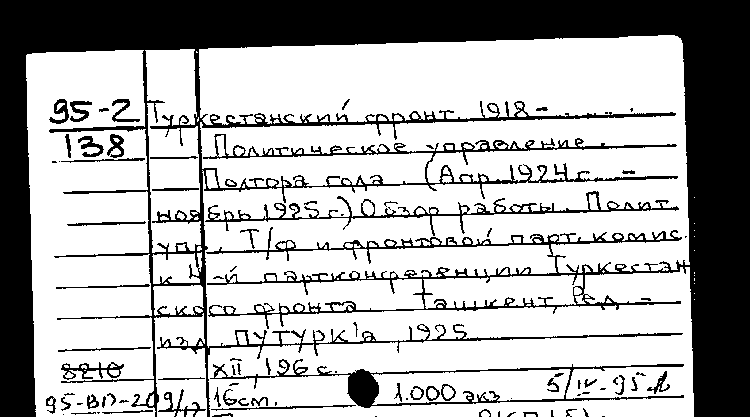 95-2 Туркестанский фронт. 1918 - ..... .
138 Политическое управление.
Полтора года. (Апр. 1924 г. -
ноябрь 1925 г.) Обзор работы. Полит.
упр. Т/ф и фронтовой парт. комис.
к 4-й партконференции Туркестан
ского фронта. Ташкент, Ред -
изд. ПУТУРК'а, 1925.
8210 XII, 196 с.
16 см. 1.000 экз. 5/IV-95